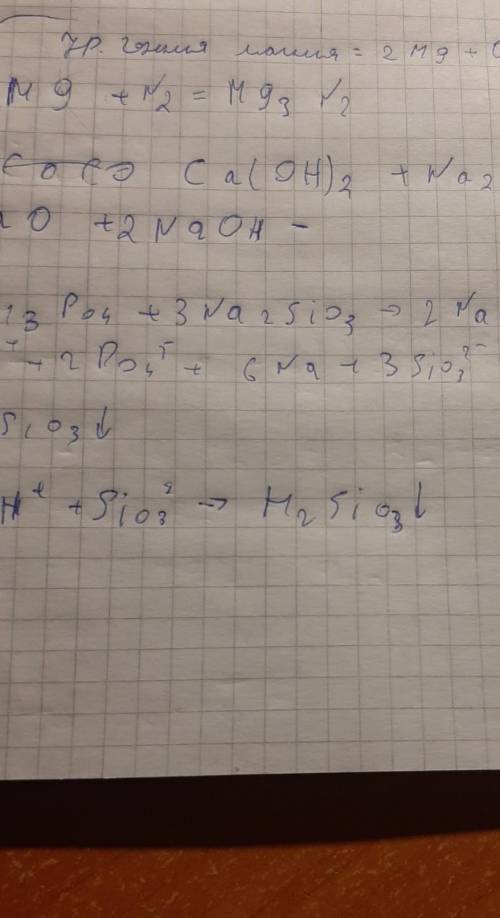 Ур. магния = 2 Mg + O
Mg + N₂ = Mg₃ N₂
Ca(OH)₂ + Na₂
O + 2 NaOH -
3 PO₄ + 3 Na₂SiO₃ → 2 Na
+ 2 PO₄ + 6 Na + 3 SiO₃²⁻
SiO₃↓
H⁺ + SiO₃² → H₂SiO₃↓